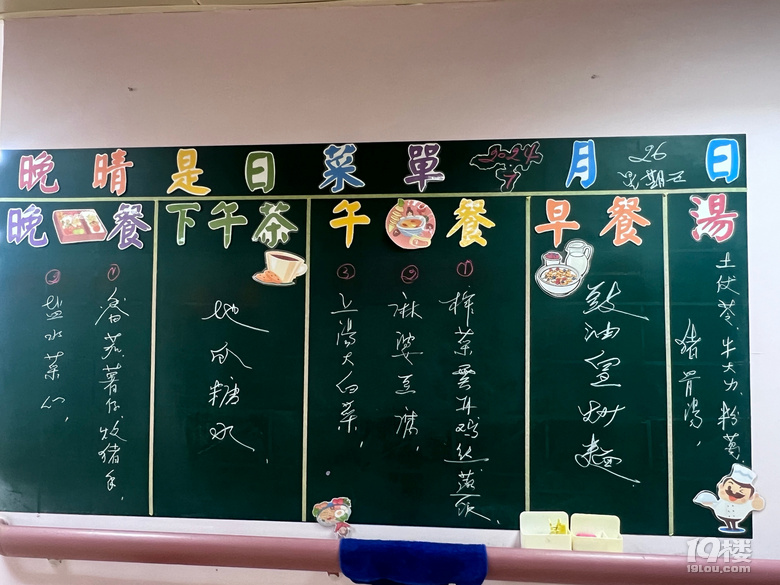 晚晴是日菜單 2024 7月26日
星期五
湯
土伏苓、牛大力、粉葛、
猪骨湯,
早餐
豉油皇炒麵
午餐
① 榨菜雲耳鸡丝蒸饭,
② 麻婆豆腐,
③ 上湯大白菜,
下午茶
地瓜糖水,
晚餐
① 番茄薯仔炆猪手,
② 盐水菜心,
19楼
19lou.com